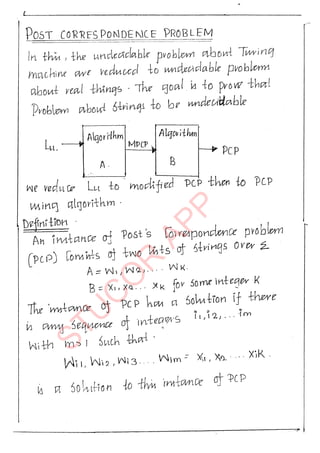 POST CORRESPONDENCE PROBLEM
In this, the undecidable problem about Turing
machine are reduced to undecidable problems
about real things. The goal is to prove that
Problem about strings to be undecidable
Algorithm
A
Algorithm
B
Lu.
MPCP
PCP
We reduce Lu to modified PCP then to PCP
using algorithm.
Definition.
An instance of Post's Correspondence problem
(PCP) Consists of two lists of strings over Σ
A = W1, W2, .... WK.
B = X1, X2... XK for some integer K
The instance of PCP has a Solution if there
is any Sequence of integers i1, i2, ... im
With m≥1 Such that.
Wi1, Wi2, Wi3.... Wim = Xi1, Xi2 .... XiK.
is a Solution to this instance of PCP
STUCOR APP